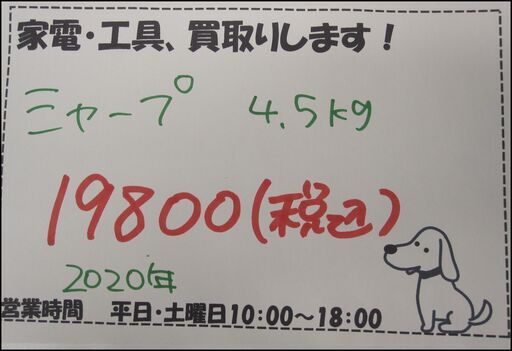 家電・工具、買取りします!
シャープ 4.5kg
19800(税込)
2020年
営業時間 平日・土曜日10:00~18:00